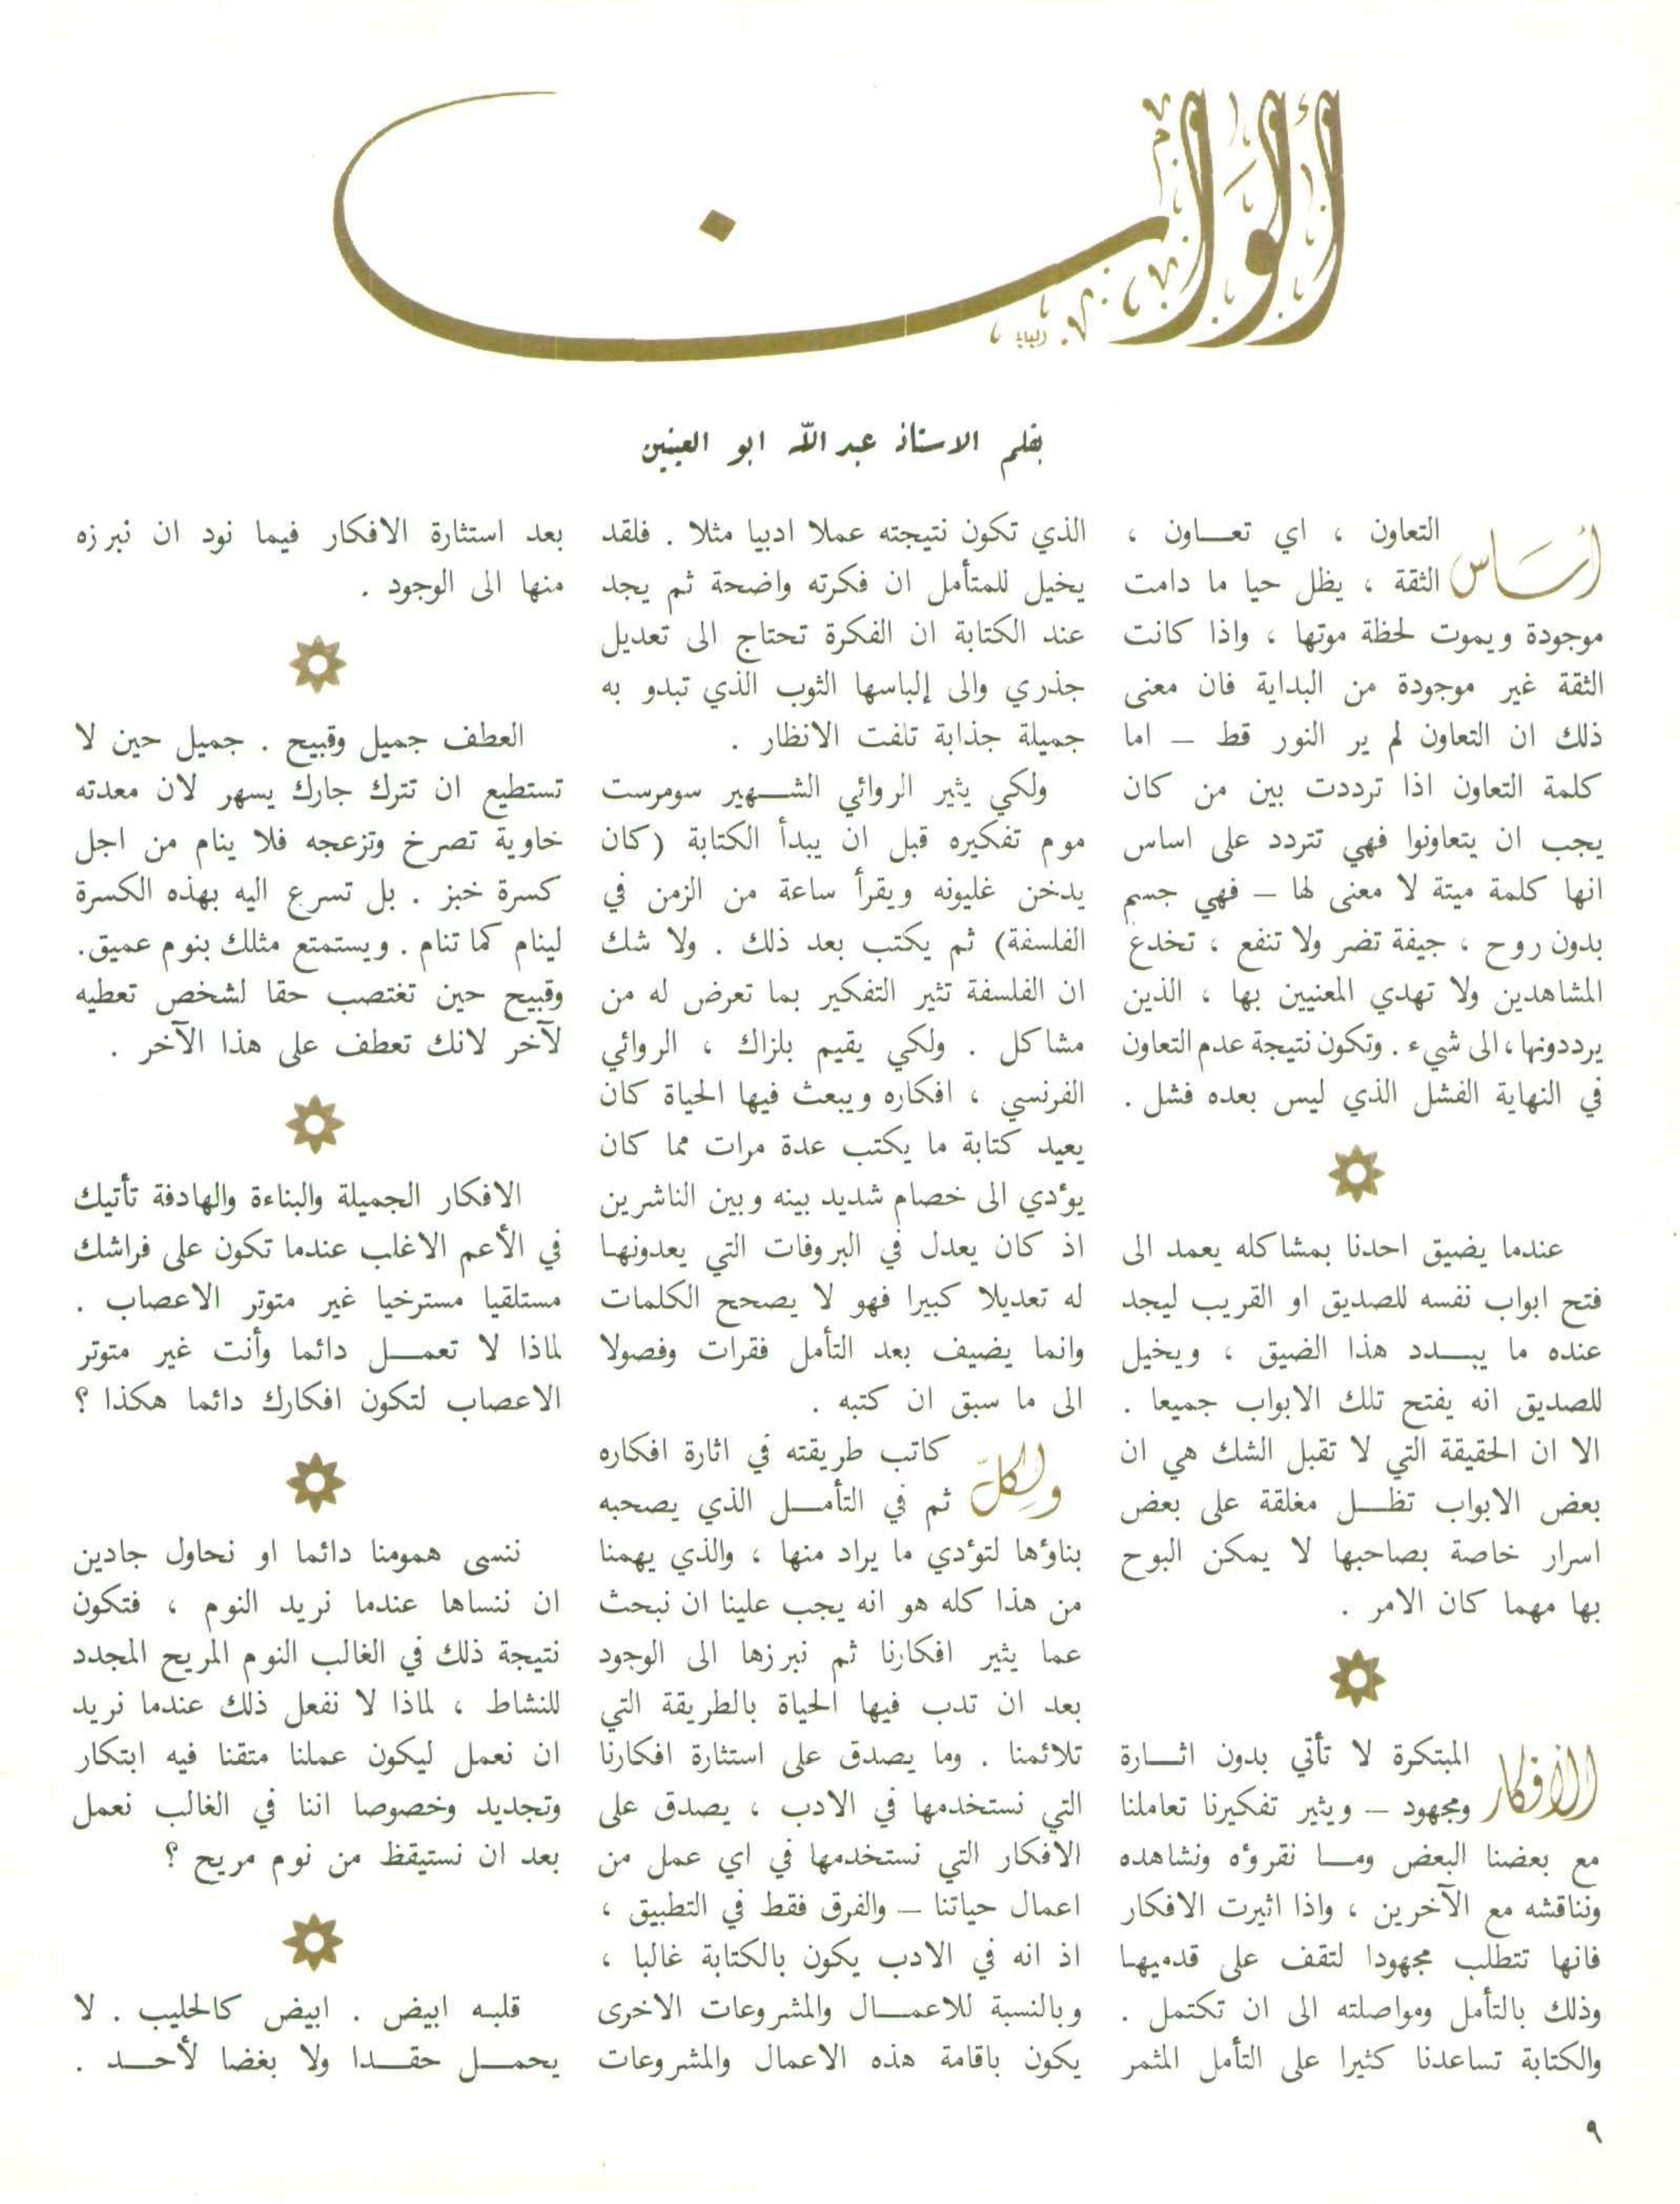 ألوان
بقلم الاستاذ عبد الله ابو العينين
أساس التعاون ، اي تعــاون ،
الثقة ، يظل حيا ما دامت
موجودة ويموت لحظة موتها ، واذا كانت
الثقة غير موجودة من البداية فان معنى
ذلك ان التعاون لم ير النور قط – اما
كلمة التعاون اذا ترددت بين من كان
يجب ان يتعاونوا فهي تتردد على اساس
انها كلمة ميتة لا معنى لها – فهي جسم
بدون روح ، جيفة تضر ولا تنفع ، تخدع
المشاهدين ولا تهدي المعنيين بها ، الذين
يرددونها ، الى شيء . وتكون نتيجة عدم التعاون
في النهاية الفشل الذي ليس بعده فشل .
عندما يضيق احدنا بمشاكله يعمد الى
فتح ابواب نفسه للصديق او القريب ليجد
عنده ما يبــدد هذا الضيق ، ويخيل
للصديق انه يفتح تلك الابواب جميعا .
الا ان الحقيقة التي لا تقبل الشك هي ان
بعض الابواب تظــل مغلقة على بعض
اسرار خاصة بصاحبها لا يمكن البوح
بها مهما كان الامر .
الافكار المبتكرة لا تأتي بدون اثــارة
ومجهود – ويثير تفكيرنا تعاملنا
مع بعضنا البعض ومــا نقروٴه ونشاهده
ونناقشه مع الآخرين ، واذا اثيرت الافكار
فانها تتطلب مجهودا لتقف على قدميها
وذلك بالتأمل ومواصلته الى ان تكتمل .
والكتابة تساعدنا كثيرا على التأمل المثمر
الذي تكون نتيجته عملا ادبيا مثلا . فلقد
يخيل للمتأمل ان فكرته واضحة ثم يجد
عند الكتابة ان الفكرة تحتاج الى تعديل
جذري والى إلباسها الثوب الذي تبدو به
جميلة جذابة تلفت الانظار .
ولكي يثير الروائي الشــهير سومرست
موم تفكيره قبل ان يبدأ الكتابة (كان
يدخن غليونه ويقرأ ساعة من الزمن في
الفلسفة) ثم يكتب بعد ذلك . ولا شك
ان الفلسفة تثير التفكير بما تعرض له من
مشاكل . ولكي يقيم بلزاك ، الروائي
الفرنسي ، افكاره ويبعث فيها الحياة كان
يعيد كتابة ما يكتب عدة مرات مما كان
يوٴدي الى خصام شديد بينه وبين الناشرين
اذ كان يعدل في البروفات التي يعدونها
له تعديلا كبيرا فهو لا يصحح الكلمات
وانما يضيف بعد التأمل فقرات وفصولا
الى ما سبق ان كتبه .
ولكلّ كاتب طريقته في اثارة افكاره
ثم في التأمــل الذي يصحبه
بناوٴها لتوٴدي ما يراد منها ، والذي يهمنا
من هذا كله هو انه يجب علينا ان نبحث
عما يثير افكارنا ثم نبرزها الى الوجود
بعد ان تدب فيها الحياة بالطريقة التي
تلائمنا . وما يصدق على استثارة افكارنا
التي نستخدمها في الادب ، يصدق على
الافكار التي نستخدمها في اي عمل من
اعمال حياتنا – والفرق فقط في التطبيق ،
اذ انه في الادب يكون بالكتابة غالبا ،
وبالنسبة للاعمــال والمشروعات الاخرى
يكون باقامة هذه الاعمال والمشروعات
بعد استثارة الافكار فيما نود ان نبرزه
منها الى الوجود .
العطف جميل وقبيح . جميل حين لا
تستطيع ان تترك جارك يسهر لان معدته
خاوية تصرخ وتزعجه فلا ينام من اجل
كسرة خبز . بل تسرع اليه بهذه الكسرة
لينام كما تنام . ويستمتع مثلك بنوم عميق.
وقبيح حين تغتصب حقا لشخص تعطيه
لآخر لانك تعطف على هذا الآخر .
الافكار الجميلة والبناءة والهادفة تأتيك
في الأعم الاغلب عندما تكون على فراشك
مستلقيا مسترخيا غير متوتر الاعصاب .
لماذا لا تعمــل دائما وأنت غير متوتر
الاعصاب لتكون افكارك دائما هكذا ؟
ننسى همومنا دائما او نحاول جادين
ان ننساها عندما نريد النوم ، فتكون
نتيجة ذلك في الغالب النوم المريح المجدد
للنشاط ، لماذا لا نفعل ذلك عندما نريد
ان نعمل ليكون عملنا متقنا فيه ابتكار
وتجديد وخصوصا اننا في الغالب نعمل
بعد ان نستيقظ من نوم مريح ؟
قلبه ابيض . ابيض كالحليب . لا
يحمــل حقــدا ولا بغضا لأحــد .
٩